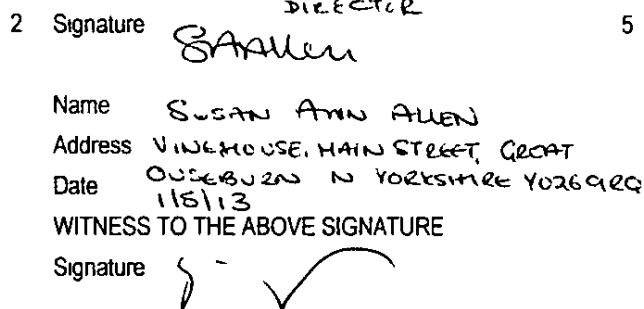 DIRECTOR
2 Signature SAAllen 5
Name SUSAN ANN ALLEN
Address VINEHOUSE, MAIN STREET, GREAT
OUSEBURN N YORKSHIRE YO26 9RG
Date 1/5/13
WITNESS TO THE ABOVE SIGNATURE
Signature